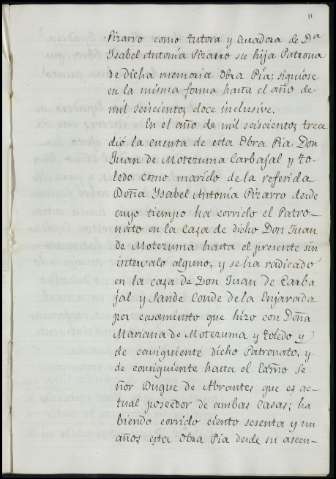 11
Pizarro como tutora y curadora de Dª
Isabel Antonia Pizarro su hija Patrona
de dicha memoria Obra Pia; siguiose
en la misma forma hasta el año de
mil seiscientos doce inclusive.
En el año de mil seiscientos trece
dió la cuenta de esta Obra Pia Don
Juan de Motezuma Carbajal y to-
ledo como marido de la referida
Doña Ysabel Antonia Pizarro desde
cuyo tiempo ha corrido el Patro-
nato en la Caza de dicho Don Juan
de Motezuma hasta el presente sin
intervalo alguno, y se ha radicado
en la caza de Don Juan de Carba-
jal y Sande Conde de la Enjarada
por casamiento que hizo con Doña
Mariana de Motezuma y toledo y
de consiguiente dicho Patronato, y
de consiguiente hasta el Exmo Se
ñor Duque de Abrantes que es ac-
tual poseedor de ambas Casas; ha
biendo corrido ciento sesenta y un
años esta Obra Pia desde su ascen-